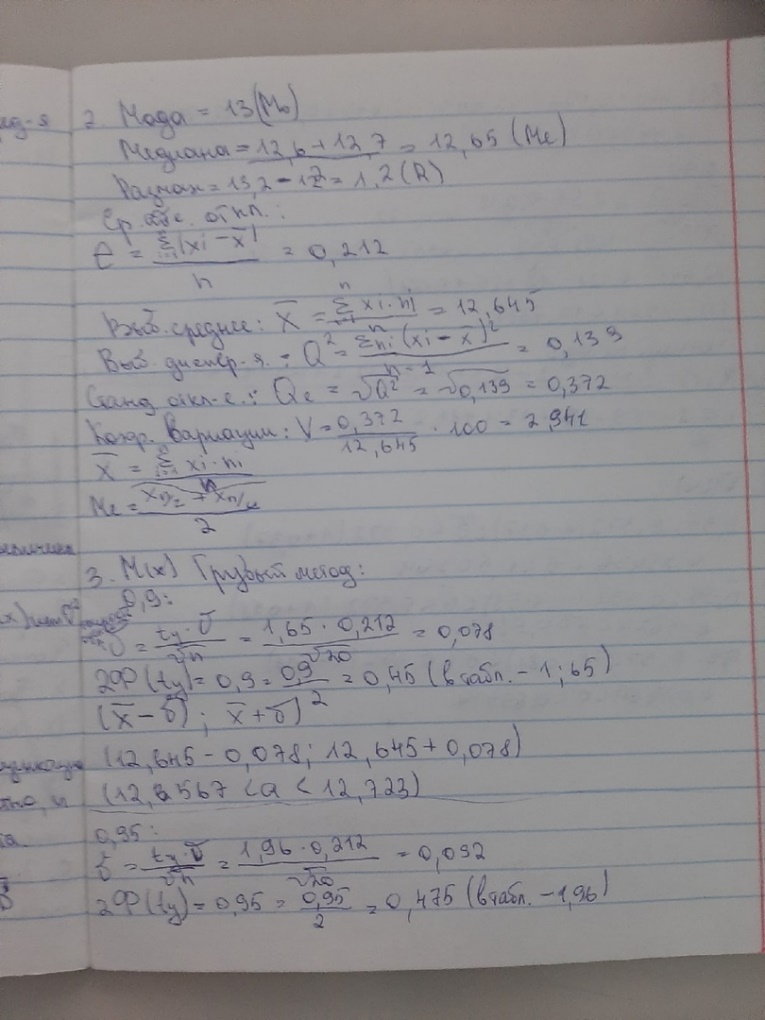 2. Мода = 13(Mo)
Медиана = 12,6 + 12,7 = 12,65 (Me)
Размах = 13,2 - 12 = 1,2 (R)
Ср. абс. откл.:
e = Σ|xi - x̄| / n = 0,212
Выб. среднее: x̄ = Σ xi · ni / n = 12,645
Выб. диспер-я.: Q² = Σ ni (xi - x̄)² / n - 1 = 0,139
Станд. откл-е.: Qe = √Q² = √0,139 = 0,372
Коэф. Вариации: V = 0,372 / 12,645 · 100 = 2,941
x̄ = Σ xi · ni / n
Me = / 2
3. M(x) Грубый метод:
0,9:
δ = tγ · σ / √n = 1,65 · 0,212 / √20 = 0,078
2Ф(tγ) = 0,9 = 0,9 / 2 = 0,45 (в табл. - 1;65)
(x̄ - δ); x̄ + δ)
(12,645 - 0,078; 12,645 + 0,078)
(12,567 < a < 12,723)
0,95:
δ = tγ · σ / √n = 1,96 · 0,212 / √20 = 0,092
2Ф(tγ) = 0,95 = 0,95 / 2 = 0,475 (в табл. - 1,96)